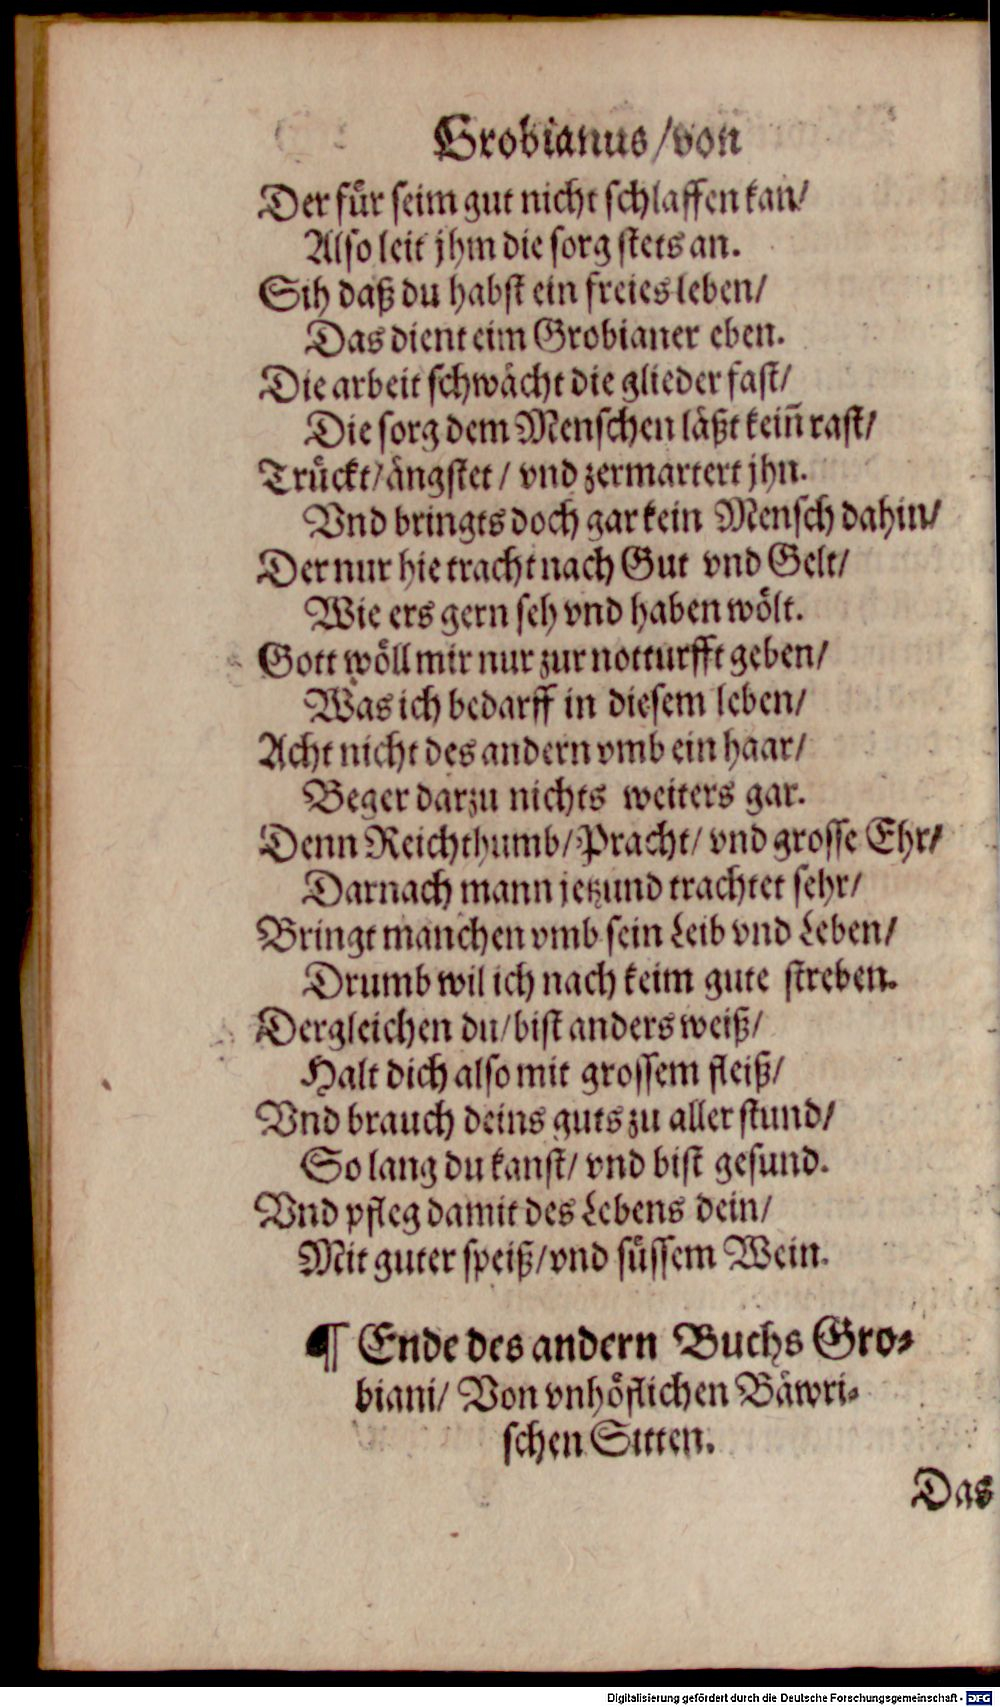 Grobianus/von
Der für seim gut nicht schlaffen kan/
Also leit jhm die sorg stets an.
Sih daß du habst ein freies leben/
Das dient eim Grobianer eben.
Die arbeit schwächt die glieder fast/
Die sorg dem Menschen läßt kein̄ rast/
Trückt/ängstet/ vnd zermartert jhn.
Vnd bringts doch gar kein Mensch dahin/
Der nur hie tracht nach Gut vnd Gelt/
Wie ers gern seh vnd haben wölt.
Gott wöll mir nur zur notturfft geben/
Was ich bedarff in diesem leben/
Acht nicht des andern vmb ein haar/
Beger darzu nichts weiters gar.
Denn Reichthumb/Pracht/ vnd grosse Ehr/
Darnach mann jetzund trachtet sehr/
Bringt manchen vmb sein Leib vnd Leben/
Drumb wil ich nach keim gute streben.
Dergleichen du/bist anders weiß/
Halt dich also mit grossem fleiß/
Vnd brauch deins guts zu aller stund/
So lang du kanst/ vnd bist gesund.
Vnd pfleg damit des Lebens dein/
Mit guter speiß/vnd süssem Wein.
¶ Ende des andern Buchs Gro-
biani/ Von vnhöflichen Bäwri-
schen Sitten.
Das
Digitalisierung gefördert durch die Deutsche Forschungsgemeinschaft - DFG